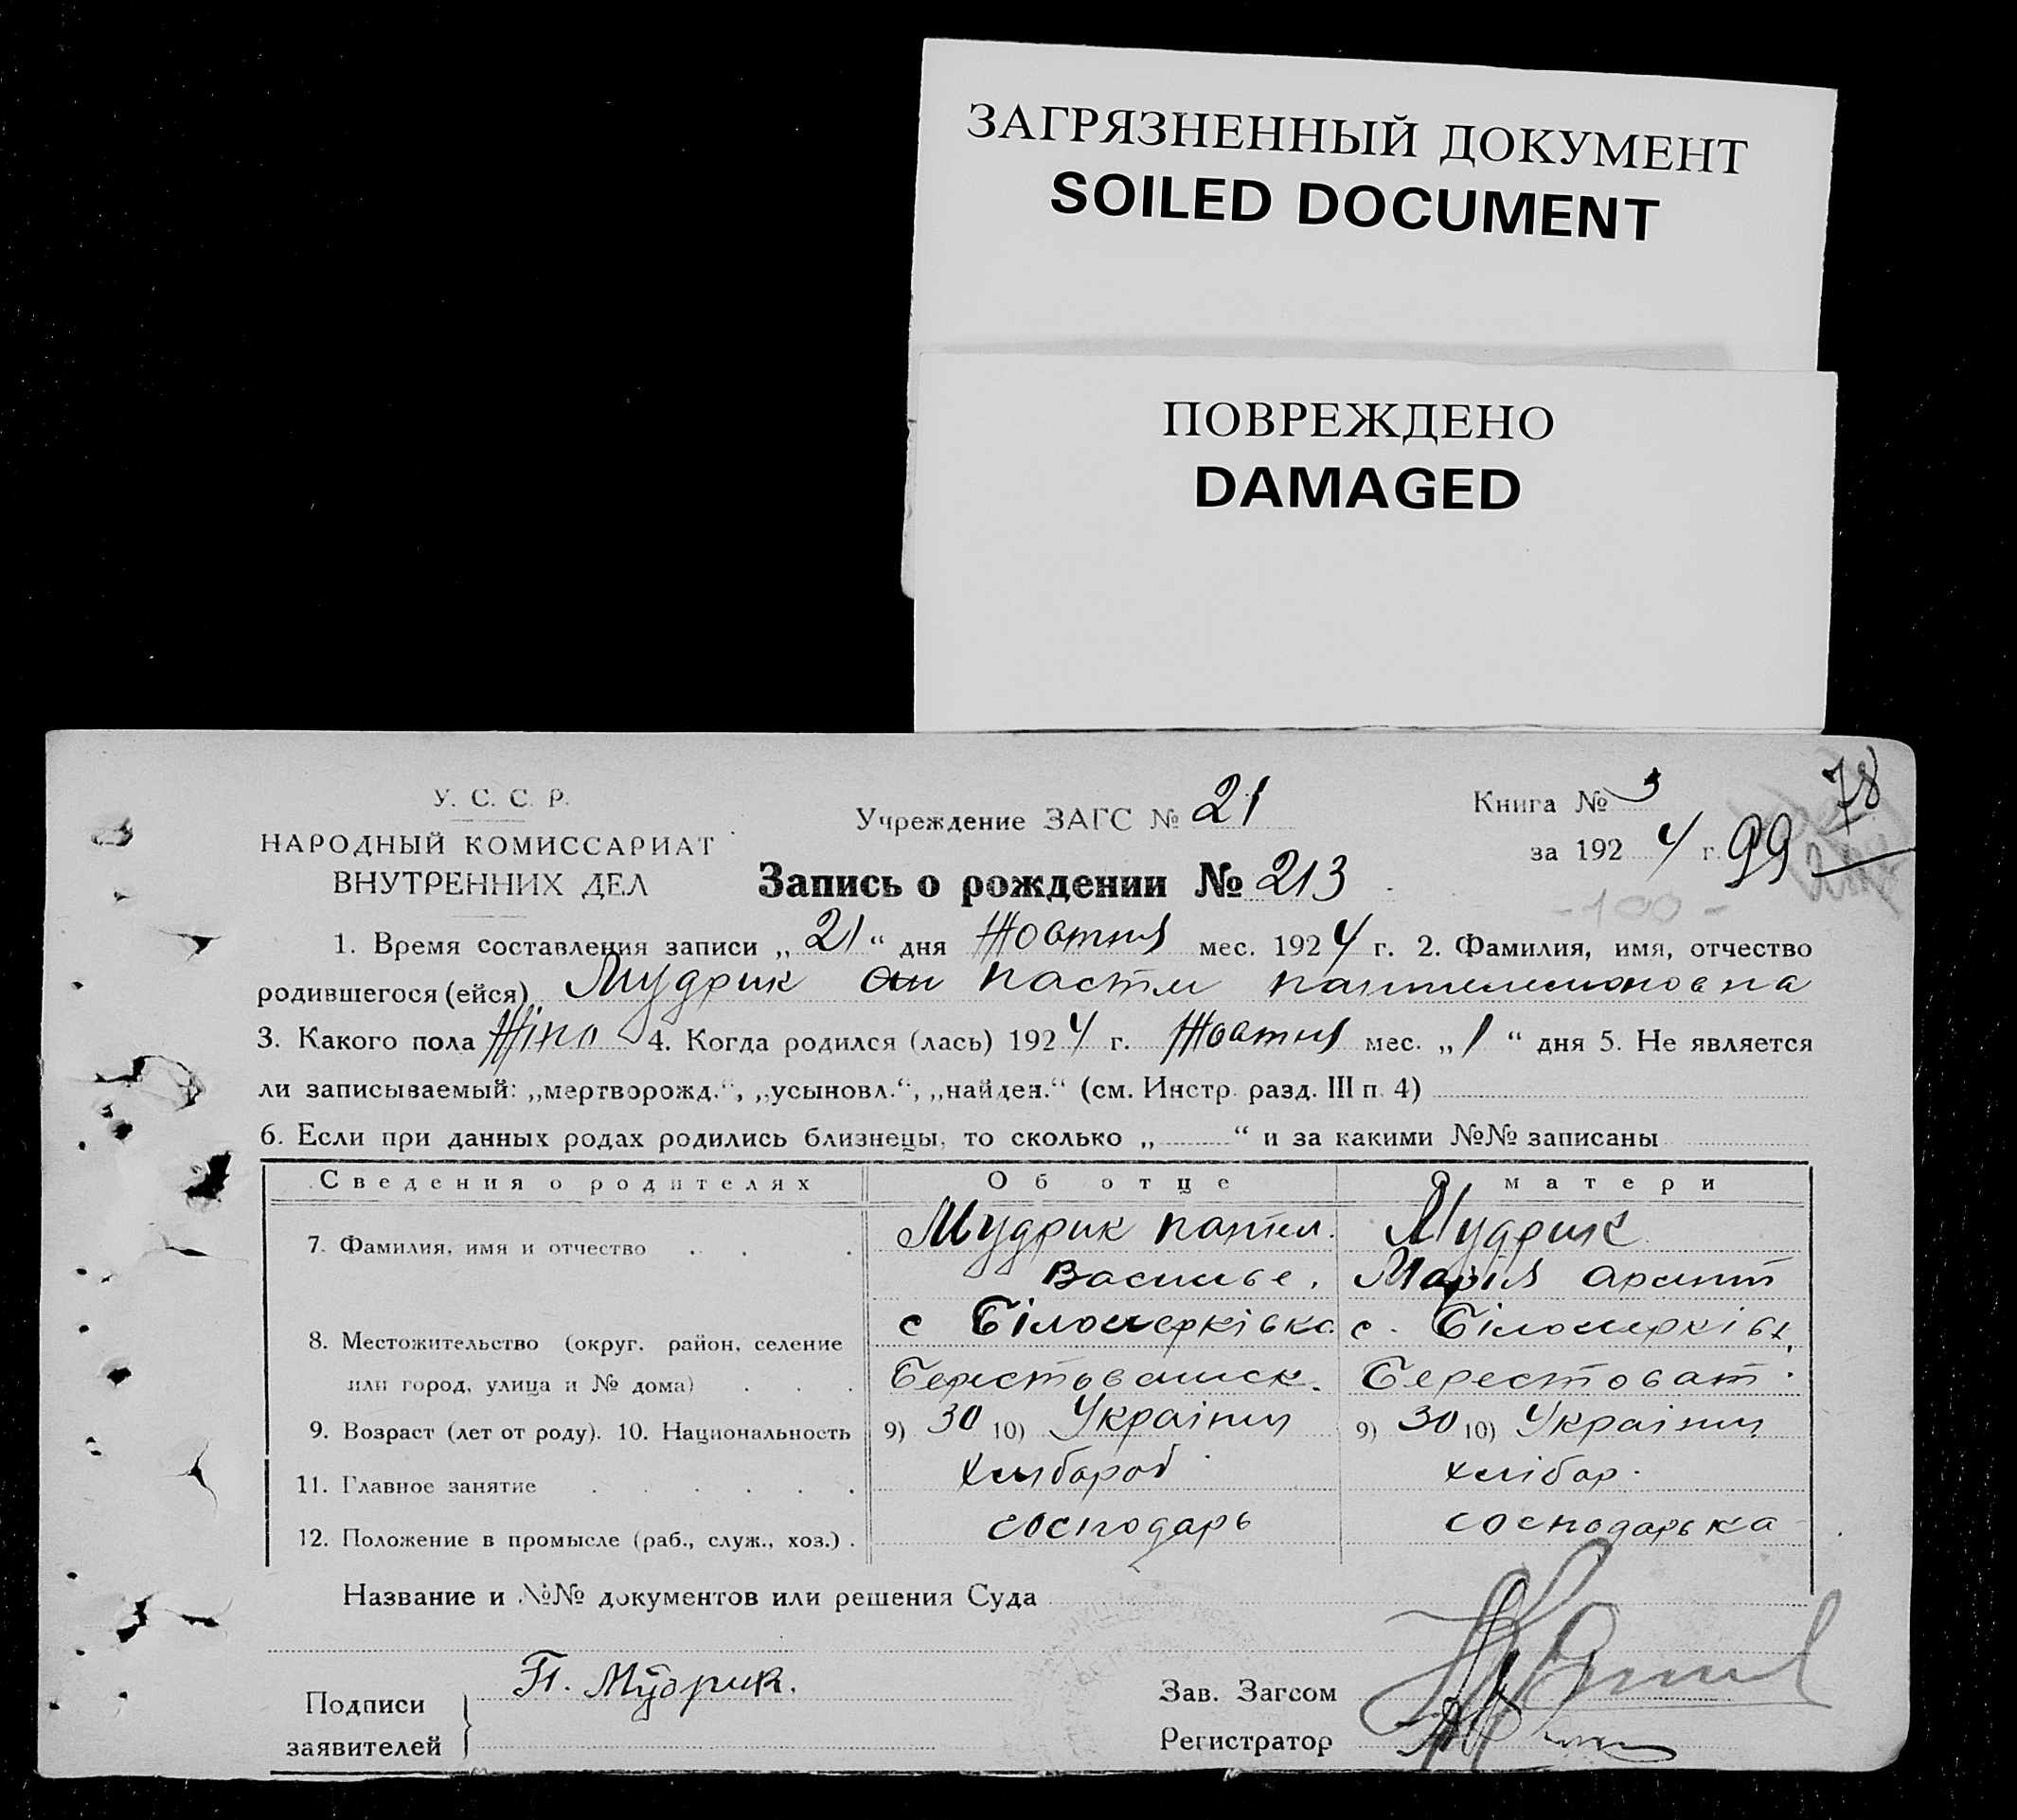 ЗАГРЯЗНЕННЫЙ ДОКУМЕНТ
SOILED DOCUMENT
ПОВРЕЖДЕНО
DAMAGED
У. С. С. Р.
НАРОДНЫЙ КОМИССАРИАТ
ВНУТРЕННИХ ДЕЛ
Учреждение ЗАГС № 21
Запись о рождении № 213
Книга № 3
за 1924 г. 99
78
-100-
1. Время составления записи „21“ дня Жовтня мес. 1924 г. 2. Фамилия, имя, отчество
родившегося (ейся) Мудрик Настя
3. Какого пола Жіно 4. Когда родился (лась) 1924 г. Жовтня мес. „1“ дня 5. Не является
ли записываемый: „мертворожд.“, „усыновл.“, „найден.“ (см. Инстр. разд. III п. 4)
6. Если при данных родах родились близнецы, то сколько „ “ и за какими №№ записаны
Сведения о родителях Об отце О матери
7. Фамилия, имя и отчество Мудрик Мудрик
Василье. Марія
8. Местожительство (округ, район, селение с Білоцерківка с. Білоцерків
или город, улица и № дома) Берестоват.
9. Возраст (лет от роду). 10. Национальность 9) 30 10) Україн 9) 30 10) Україн
11. Главное занятие Хлібороб хлібор.
12. Положение в промысле (раб., служ., хоз.) господарь господарька
Название и №№ документов или решения Суда
Подписи заявителей П. Мудрик.
Зав. Загсом
Регистратор